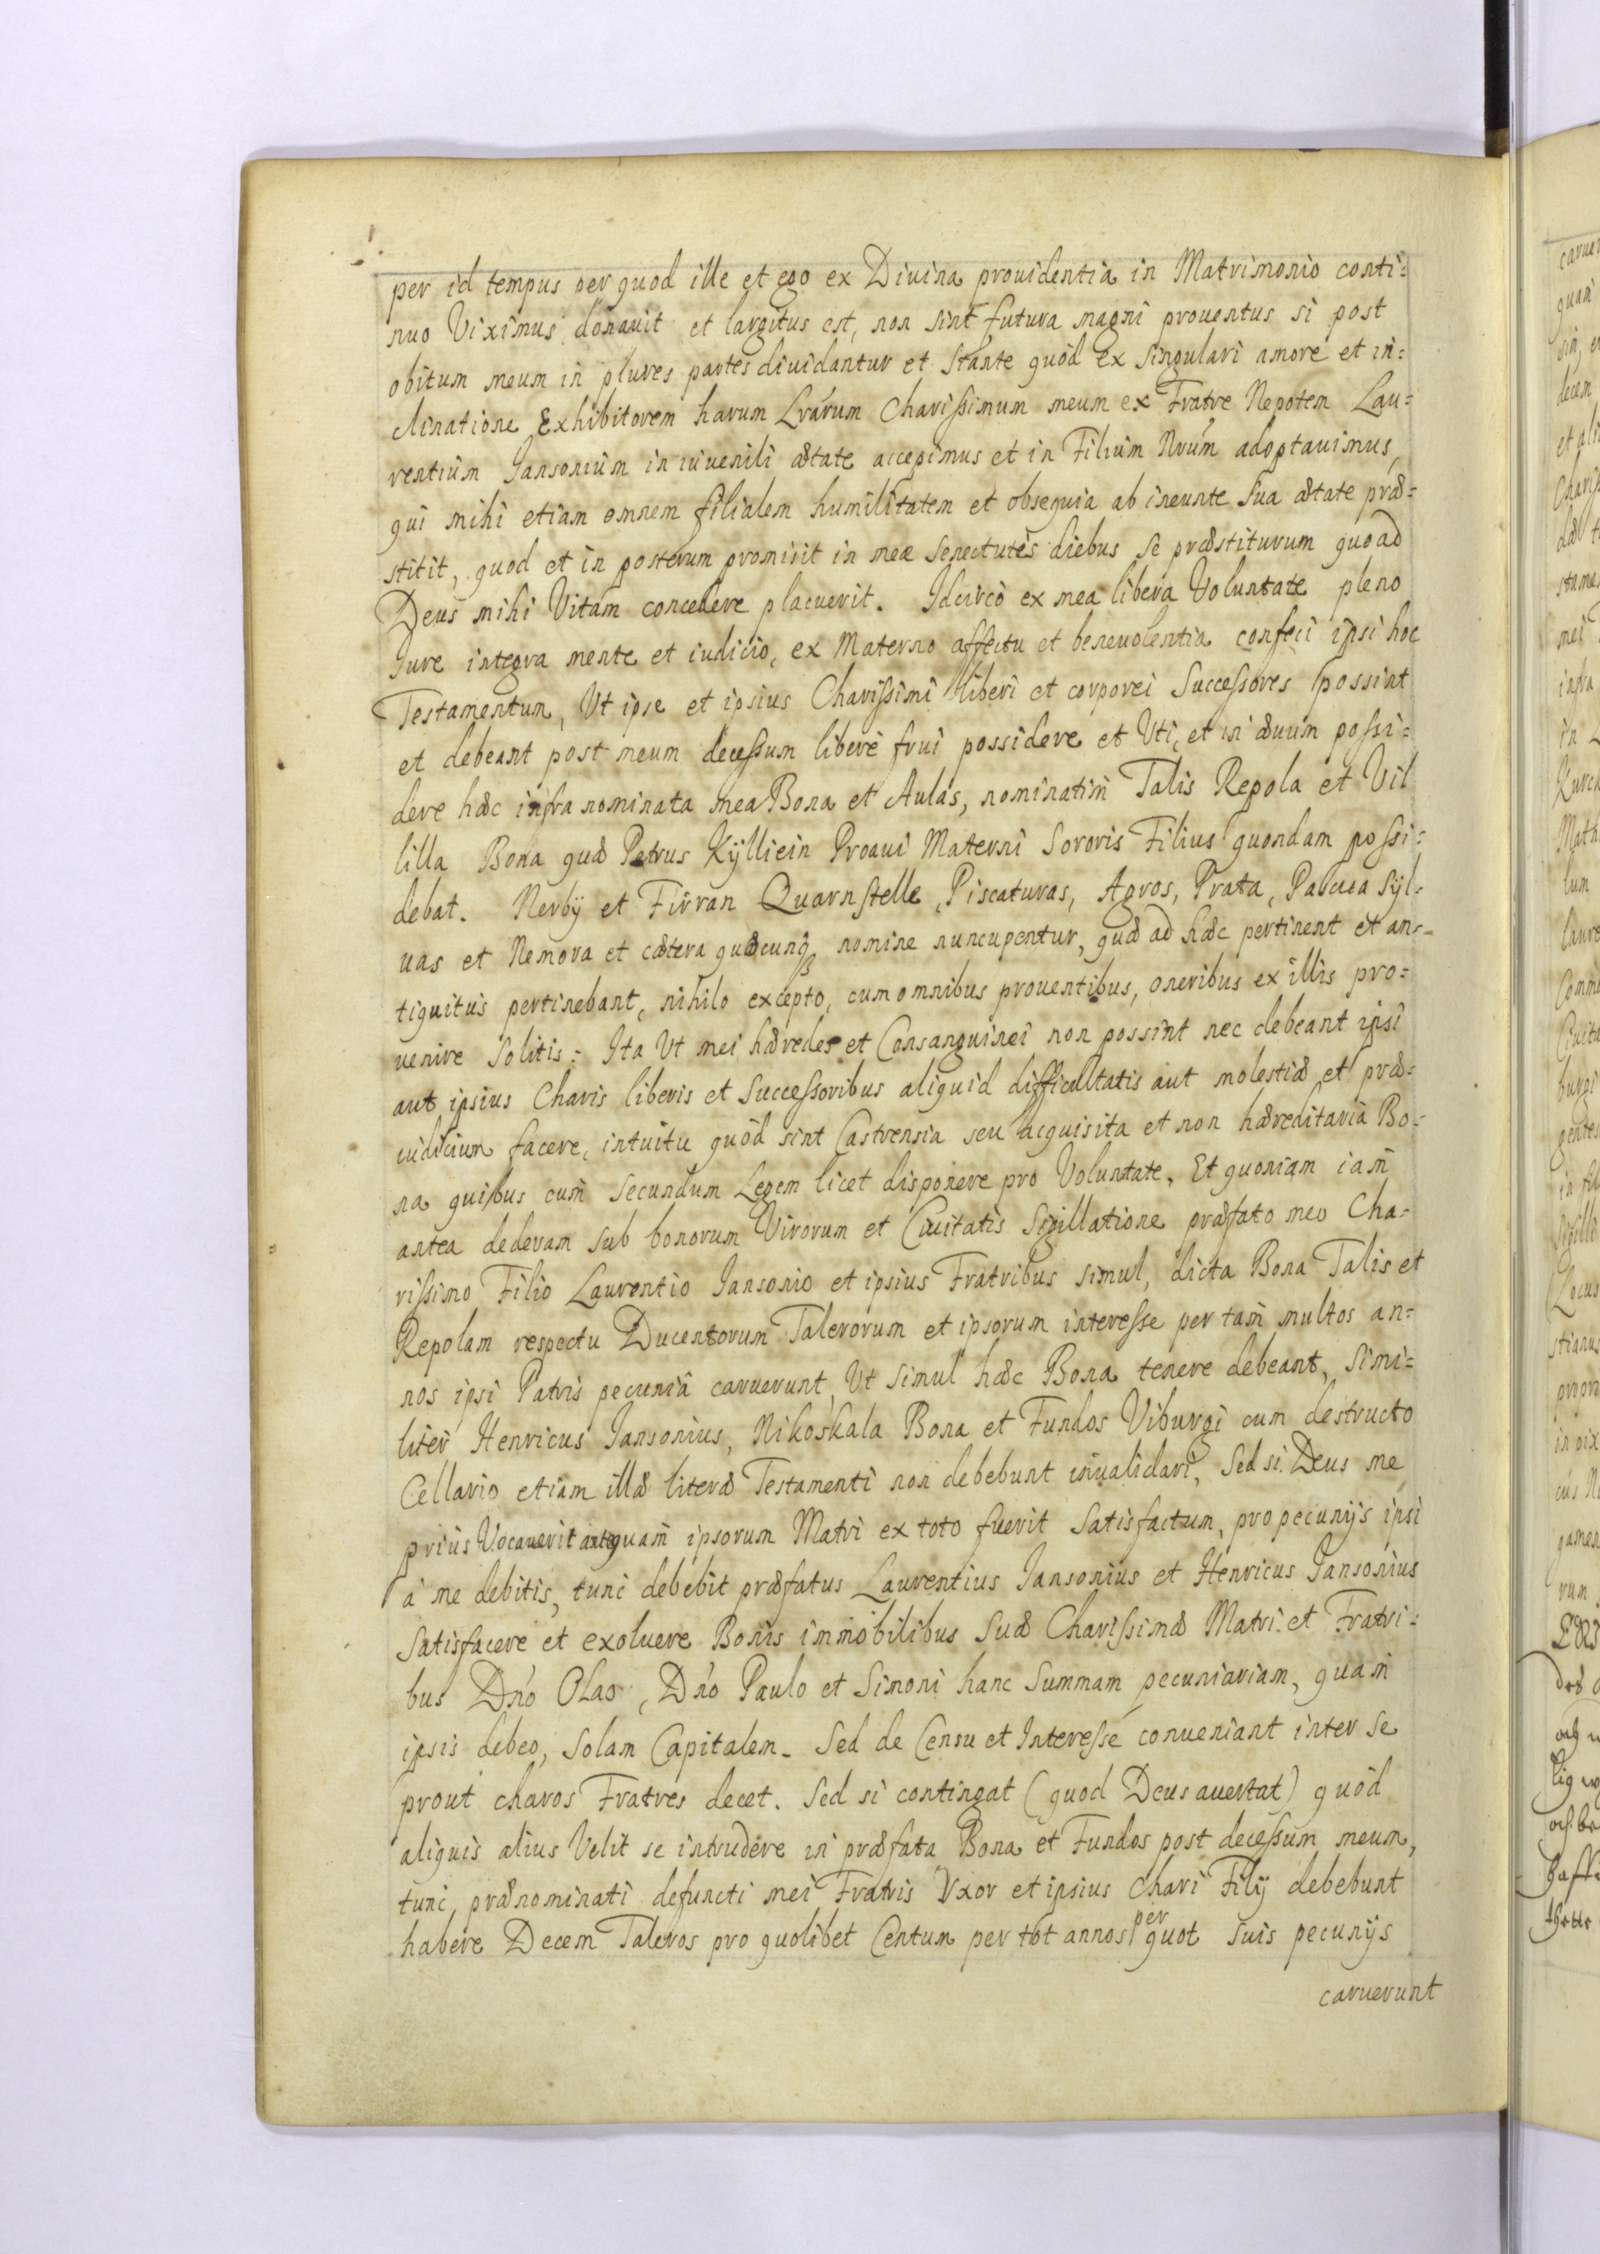 per id tempus per quod ille et ego ex Diuina prouidentia in Matrimonio conti=
nuo Viximus donauit et largitus est, non sint futura magni prouentus si post
obitum meum in plures partes diuidantur et stante quòd ex singulari amore et in=
clinatione Exhibitorem harum Lrarum Charissimum meum ex Fratre Nepotem Lau=
rentium Jansonium in iuuenili ætate accepimus et in Filium Nrum adoptauimus,
qui mihi etiam omnem filialem humilitatem et obsequia ab ineunte sua ætate præ=
stitit, quod et in posterum promisit in meæ senectutis diebus se præstiturum quoad
Deus mihi Vitam concedere placuerit. Idcircò ex mea libera Voluntate pleno
Jure integra mente et iudicio, ex Materno affectu et beneuolentia confeci ipsi hoc
Testamentum, Vt ipse et ipsius Charissimi liberi et corporei Successores possint
et debeant post meum decessum liberè frui possidere et Vti, et in æuum possi=
dere hæc infra nominata mea Bona et Aulas, nominatim Talis Repola et Vil
lilla Bona quæ Petrus Kÿlliein Proaui Materni Sororis Filius quondam possi=
debat. Nerbÿ et Firran Quarnstelle, Piscaturas, Agros, Prata, Pascua Syl=
uas et Nemora et cætera quæcunq nomine nuncupentur, quæ ad hæc pertinent et an=
tiquitus pertinebant, nihilo excepto, cum omnibus prouentibus, oneribus ex illis pro=
uenire solitis: Ita Vt mei hæredes et Consanguinei non possint nec debeant ipsi
aut ipsius Charis liberis et Successoribus aliquid difficultatis aut molestiæ et præ=
iudicium facere, intuitu quòd sint Castrensia seu acquisita et non hæreditaria Bo=
na quibus cum secundum Legem licet disponere pro Voluntate, Et quoniam iam
antea dederam sub bonorum Virorum et Ciuitatis Sigillatione præfato meo Cha=
rissimo Filio Laurentio Jansonio et ipsius Fratribus simul, dicta Bona Talis et
Repolam respectu Ducentorum Talerorum et ipsorum interesse per tam multos an=
nos ipsi Patris pecuniâ caruerunt, Vt simul hæc Bona tenere debeant, Simi=
liter Henricus Jansonius, Nikoskala Bona et Fundos Viburgi cum destructo
Cellario etiam illæ literæ Testamenti non debebunt inualidari, Sed si Deus me
prius Vocauerit antequam ipsorum Matri ex toto fuerit satisfactum, pro pecunijs ipsi
à me debitis, tunc debebit præfatus Laurentius Jansonius et Henricus Jansonius
Satisfacere et exoluere Bonis immobilibus suæ Charissimæ Matri et Fratri=
bus Dno Olao, Dno Paulo et Simoni hanc Summam pecuniariam, quam
ipsis debeo, solam Capitalem. Sed de Censu et Interesse conueniant inter se
prout charos Fratres decet. Sed si contingat (quod Deus auertat) quòd
aliquis alius Velit se intrudere in præfata Bona et Fundos post decessum meum,
tunc prænominati defuncti mei Fratris Vxor et ipsius Chari Filij debebunt
habere Decem Taleros pro quolibet Centum per tot annos per quot suis pecunijs
caruerunt